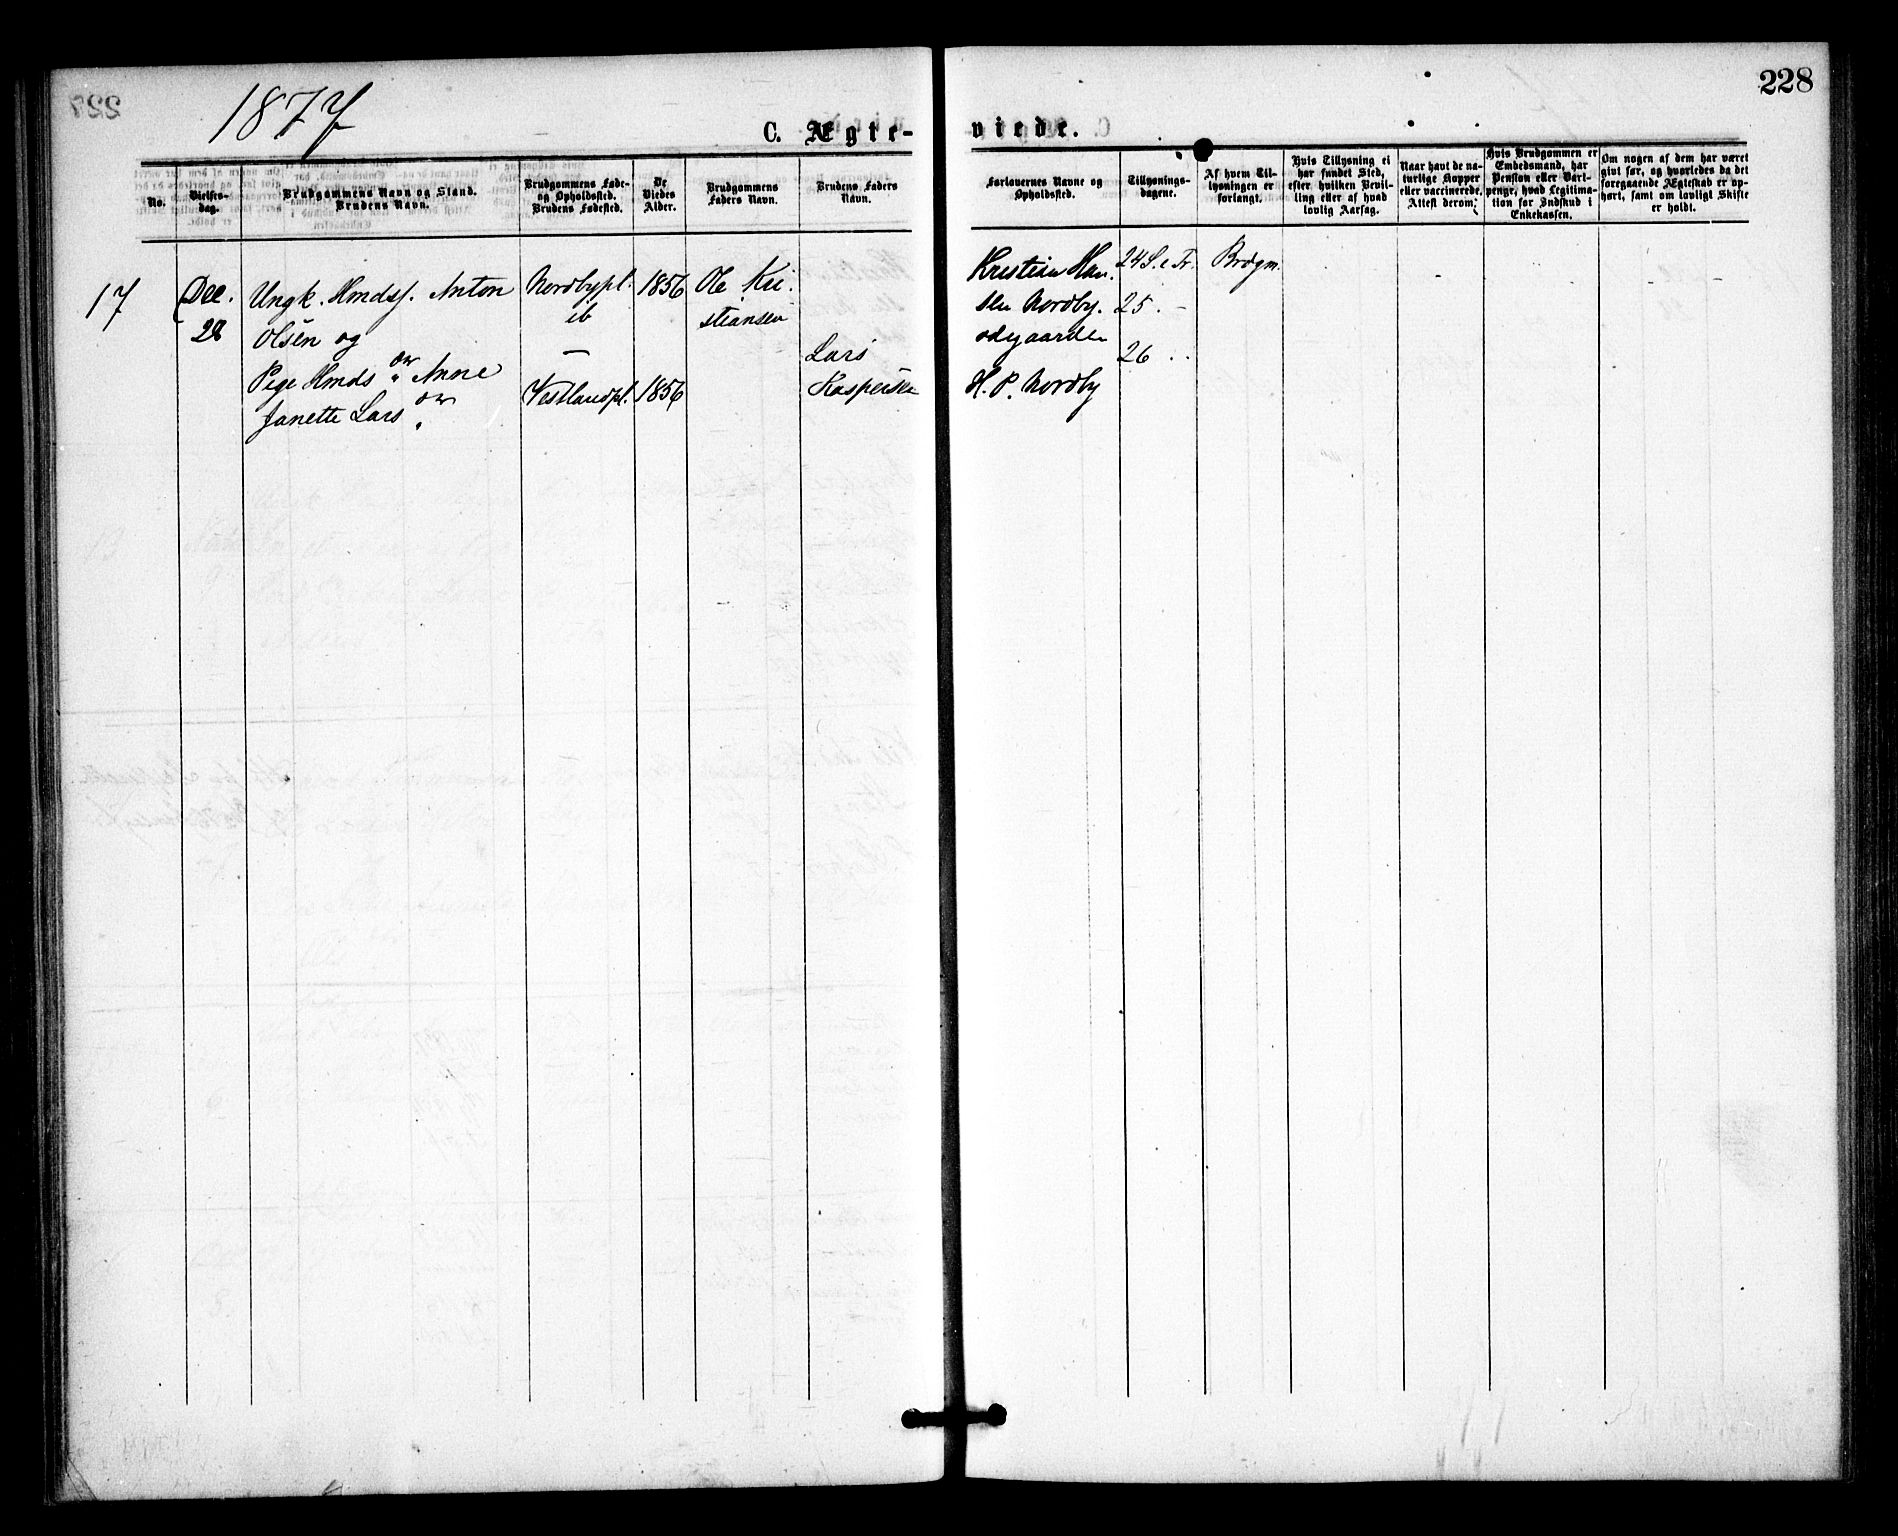 1877
228
C. Ægte-
viede.
No.
Vielses-
dag.
Brudgommens Navn og Stand.
Brudens Navn.
Brudgommens Føde-
og Opholdssted.
Brudens Fødested.
De
Viedes
Alder.
Brudgommens
Faders Navn.
Brudens Faders
Navn.
Forlovernes Navne og
Opholdssted.
Tillysnings-
dagene.
Af hvem Til-
lysningen er
forlangt.
Hvis Tillysning ei
har fundet Sted,
efter hvilken Bevil-
ling eller af hvad
lovlig Aarsag.
Naar havt de na-
turlige Kopper
eller vaccinerede.
Attest derom.
Hvis Brudgommen er
Embedsmand, har
Pension eller Vart-
penge, hvad Legitima-
tion for Indskud i
Enkekassen.
Om nogen af dem har været
givt før, og hvorledes da det
foregaaende Ægteskab er op-
hørt, samt om lovligt Skifte
er holdt.
17
Dec.
28
Ungk. Hmdsf. Anton
Olsen og
Pige Hmds dr Anne
Janette Lars dr
Nordbypl.
ib
—
Vestlandpl.
1856
1856
Ole Kri-
stiansen
Lars
Kaspersen
Kristian Han-
sen Nordby-
ødegaarden
H. P. Nordby
24 S. e Tr.
25 . –
26 . .
Brdgm.